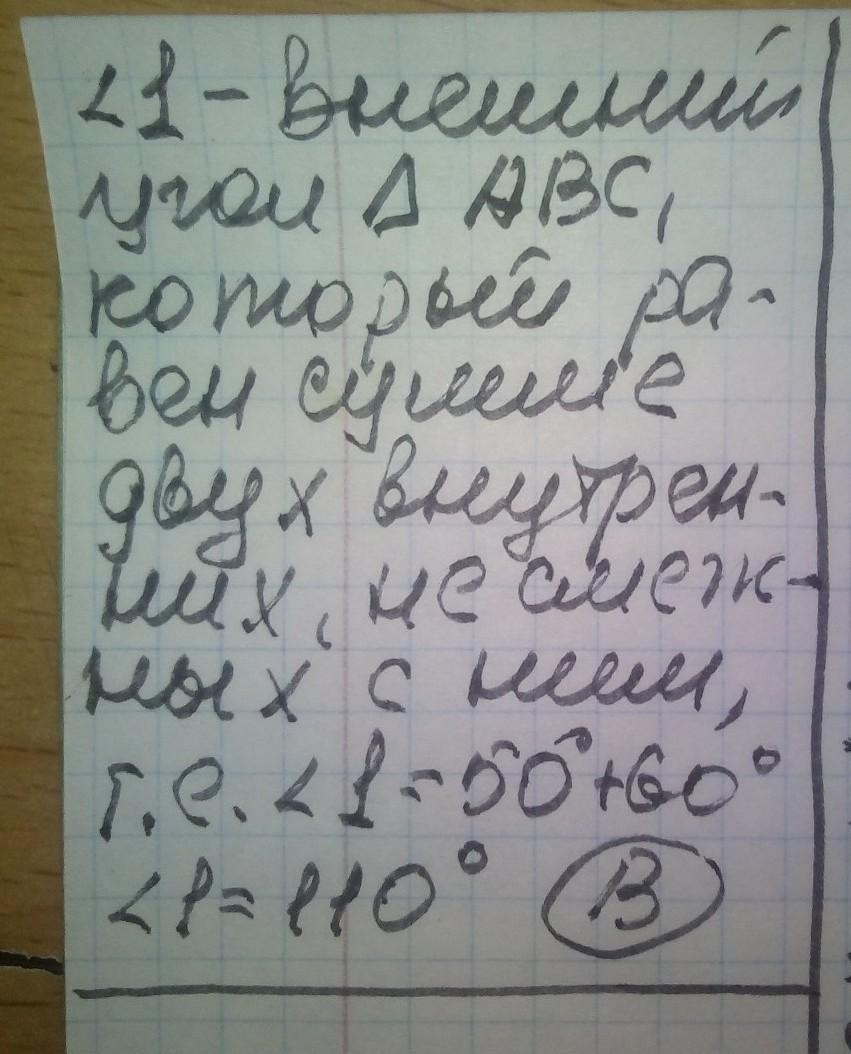 ∠1 - Внешний
угол Δ ABC,
который ра-
вен сумме
двух внутрен-
них, не смеж-
ных с ним,
т.е. ∠1=50°+60°
∠1=110° В